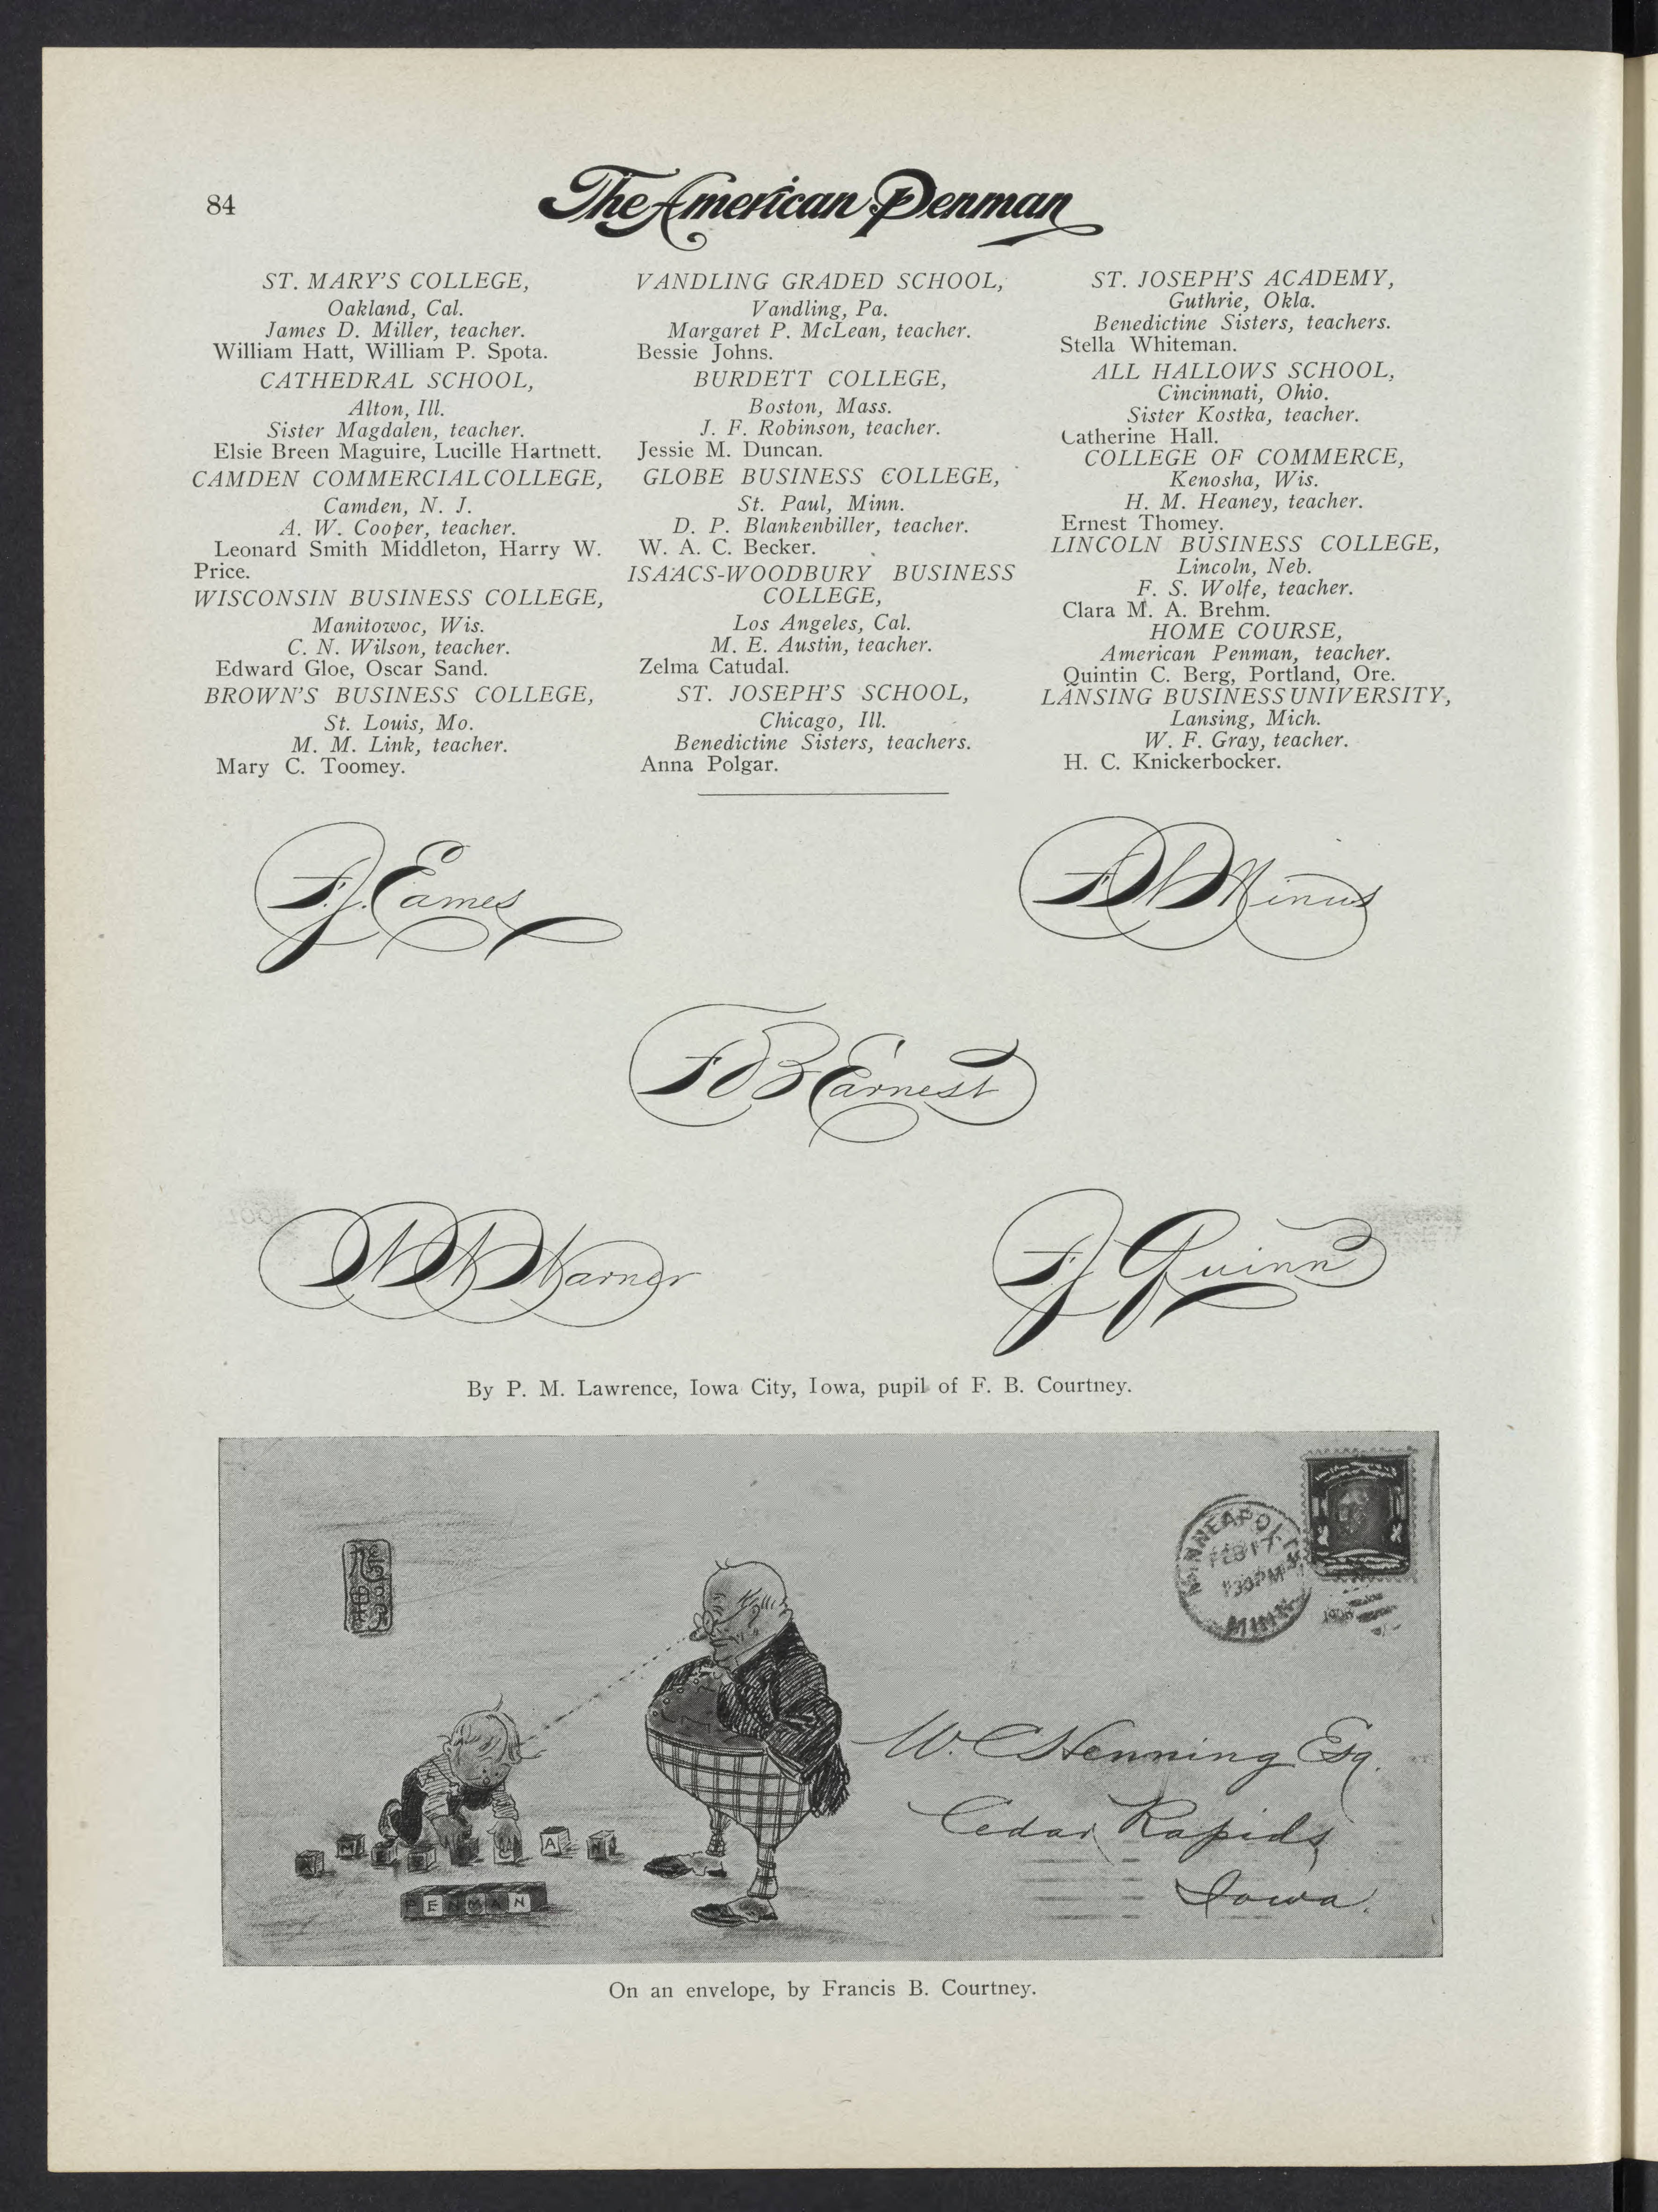 84
The American Penman
ST. MARY'S COLLEGE,
Oakland, Cal.
James D. Miller, teacher.
William Hatt, William P. Spota.
CATHEDRAL SCHOOL,
Alton, Ill.
Sister Magdalen, teacher.
Elsie Breen Maguire, Lucille Hartnett.
CAMDEN COMMERCIAL COLLEGE,
Camden, N. J.
A. W. Cooper, teacher.
Leonard Smith Middleton, Harry W.
Price.
WISCONSIN BUSINESS COLLEGE,
Manitowoc, Wis.
C. N. Wilson, teacher.
Edward Gloe, Oscar Sand.
BROWN'S BUSINESS COLLEGE,
St. Louis, Mo.
M. M. Link, teacher.
Mary C. Toomey.
VANDLING GRADED SCHOOL,
Vandling, Pa.
Margaret P. McLean, teacher.
Bessie Johns.
BURDETT COLLEGE,
Boston, Mass.
J. F. Robinson, teacher.
Jessie M. Duncan.
GLOBE BUSINESS COLLEGE,
St. Paul, Minn.
D. P. Blankenbiller, teacher.
W. A. C. Becker.
ISAACS-WOODBURY BUSINESS
COLLEGE,
Los Angeles, Cal.
M. E. Austin, teacher.
Zelma Catudal.
ST. JOSEPH'S SCHOOL,
Chicago, Ill.
Benedictine Sisters, teachers.
Anna Polgar.
ST. JOSEPH'S ACADEMY,
Guthrie, Okla.
Benedictine Sisters, teachers.
Stella Whiteman.
ALL HALLOWS SCHOOL,
Cincinnati, Ohio.
Sister Kostka, teacher.
Catherine Hall.
COLLEGE OF COMMERCE,
Kenosha, Wis.
H. M. Heaney, teacher.
Ernest Thomey.
LINCOLN BUSINESS COLLEGE,
Lincoln, Neb.
F. S. Wolfe, teacher.
Clara M. A. Brehm.
HOME COURSE,
American Penman, teacher.
Quintin C. Berg, Portland, Ore.
LANSING BUSINESS UNIVERSITY,
Lansing, Mich.
W. F. Gray, teacher.
H. C. Knickerbocker.
F. J. Eames
F W Minus
F B Earnest
W W Warner
F. J. Quinn
By P. M. Lawrence, Iowa City, Iowa, pupil of F. B. Courtney.
MINNEAPOLIS
FEB 17
130PM
MINN
W. C Henning Esq.
Cedar Rapids
Iowa.
A
PENMAN
On an envelope, by Francis B. Courtney.